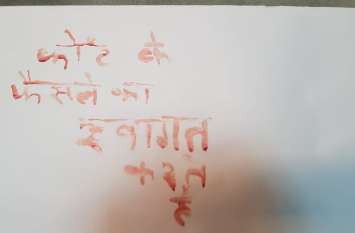 कोर्ट के
फैसले का
स्वागत
करते
है